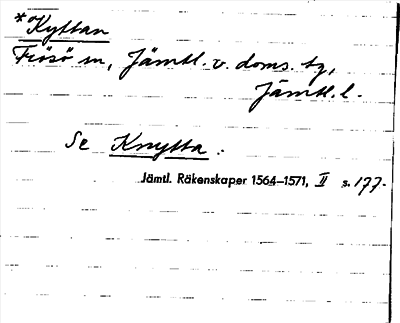 *Kyttan
Frösö sn, Jämtl. v. doms. tg,
Jämtl. l.
Se Knytta.
Jämtl. Räkenskaper 1564–1571, II s. 177.